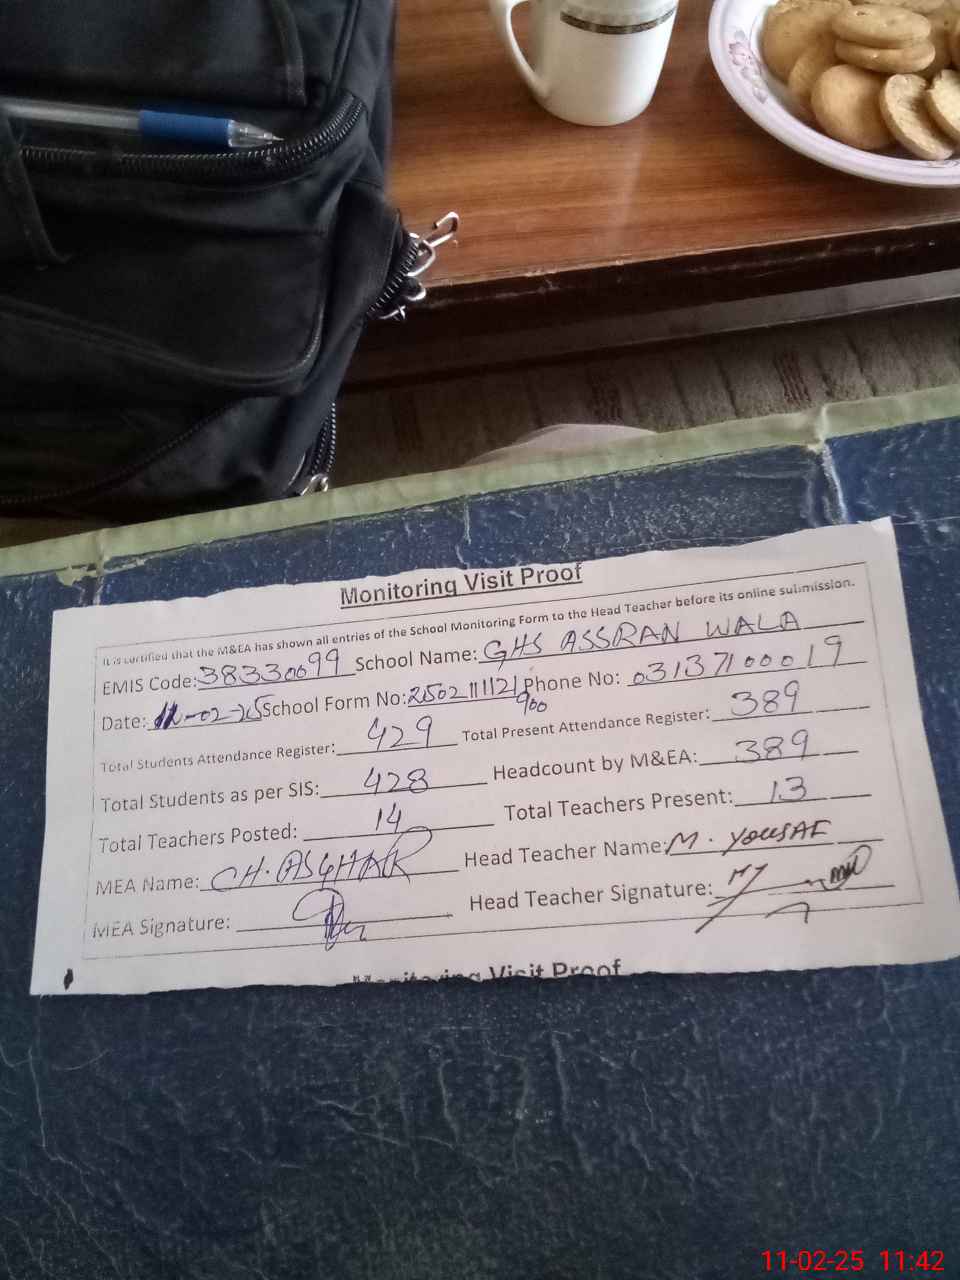 Monitoring Visit Proof
It is certified that the M&EA has shown all entries of the School Monitoring Form to the Head Teacher before its online submission.
EMIS Code: 38330099 School Name: GHS ASSRAN WALA
Date: 11-02-25 School Form No: 2502111121900 Phone No: 03137100019
Total Students Attendance Register: 429 Total Present Attendance Register: 389
Total Students as per SIS: 428 Headcount by M&EA: 389
Total Teachers Posted: 14 Total Teachers Present: 13
MEA Name: CH. ASGHAR Head Teacher Name: M. YOUSAF
MEA Signature: Head Teacher Signature:
Monitoring Visit Proof
11-02-25 11:42